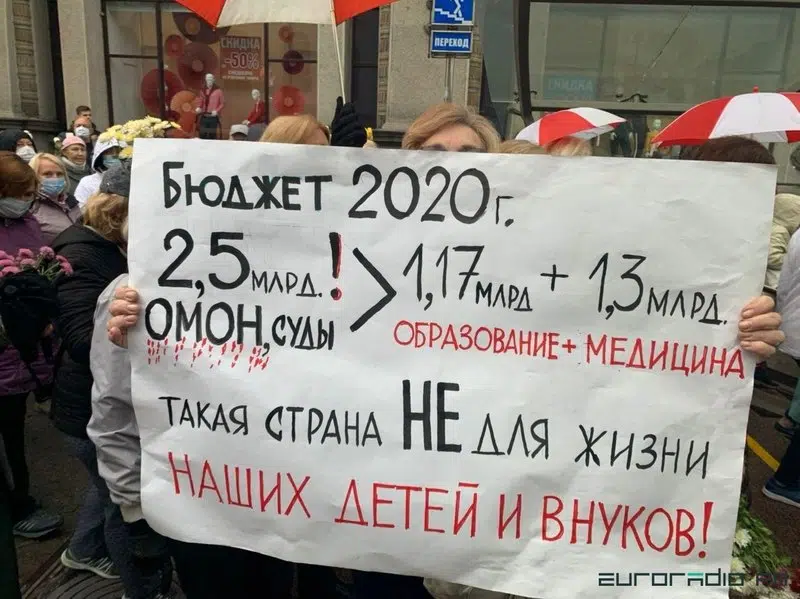 СКИДКА
-50%
ПЕРЕХОД
СКИДКА
БЮДЖЕТ 2020 г.
2,5 МЛРД.! > 1,17 МЛРД + 1,3 МЛРД.
ОМОН, СУДЫ
ОБРАЗОВАНИЕ + МЕДИЦИНА
ТАКАЯ СТРАНА НЕ ДЛЯ ЖИЗНИ
НАШИХ ДЕТЕЙ И ВНУКОВ!